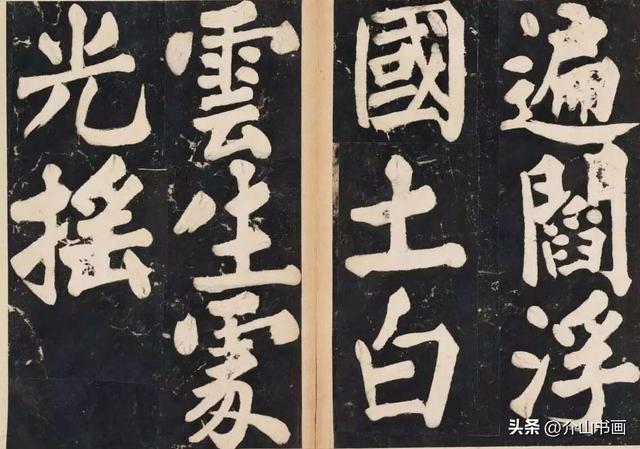 遍閻浮
國土白
雲生處
光摇
头条 @介山书画